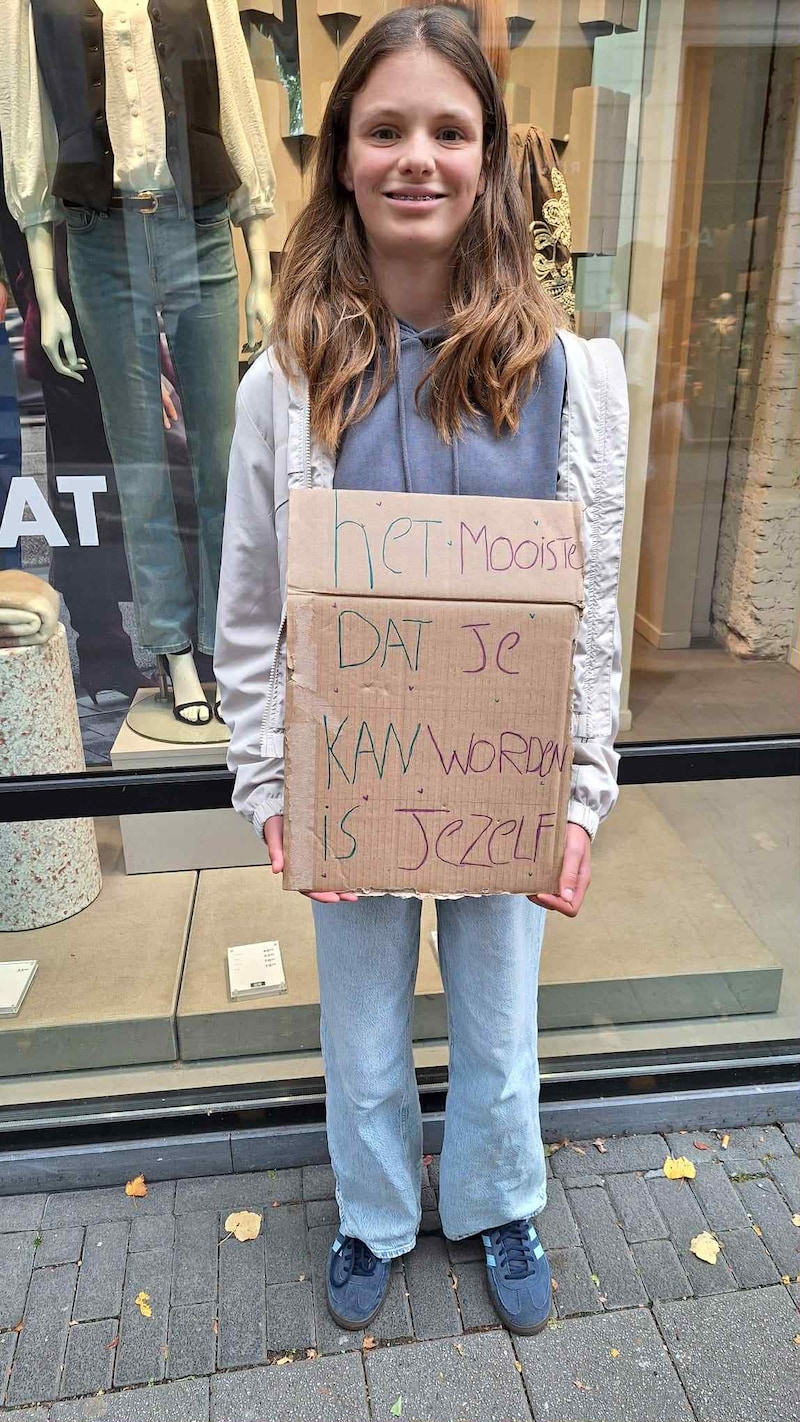 AT
hET MOOISTE
DAT JE
KAN WORDEN
iS JEZELF